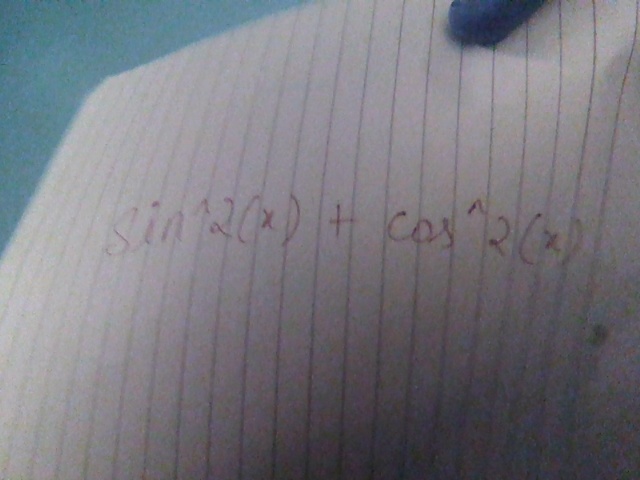 sin^2(x) + cos^2(x)